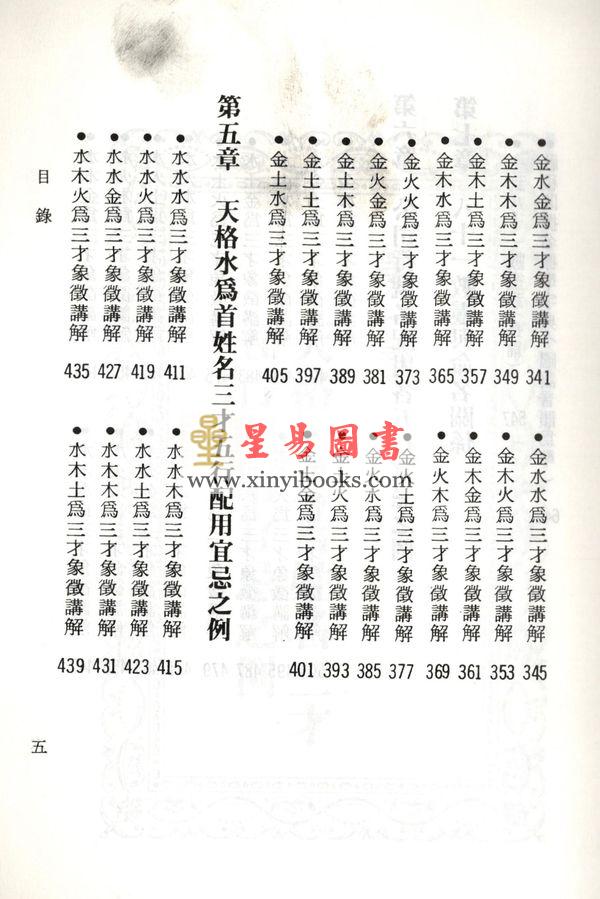 金水金為三才象徵講解 341
金水水為三才象徵講解 345
金木木為三才象徵講解 349
金木火為三才象徵講解 353
金木土為三才象徵講解 357
金木金為三才象徵講解 361
金木水為三才象徵講解 365
金火木為三才象徵講解 369
金火火為三才象徵講解 373
金火土為三才象徵講解 377
金火金為三才象徵講解 381
金火水為三才象徵講解 385
金土木為三才象徵講解 389
金土火為三才象徵講解 393
金土土為三才象徵講解 397
金土金為三才象徵講解 401
金土水為三才象徵講解 405
第五章 天格水為首姓名三才五行配用宜忌之例
水水水為三才象徵講解 411
水水木為三才象徵講解 415
水水火為三才象徵講解 419
水水土為三才象徵講解 423
水水金為三才象徵講解 427
水木木為三才象徵講解 431
水木火為三才象徵講解 435
水木土為三才象徵講解 439
目錄
五
星易圖書
www.xinyibooks.com